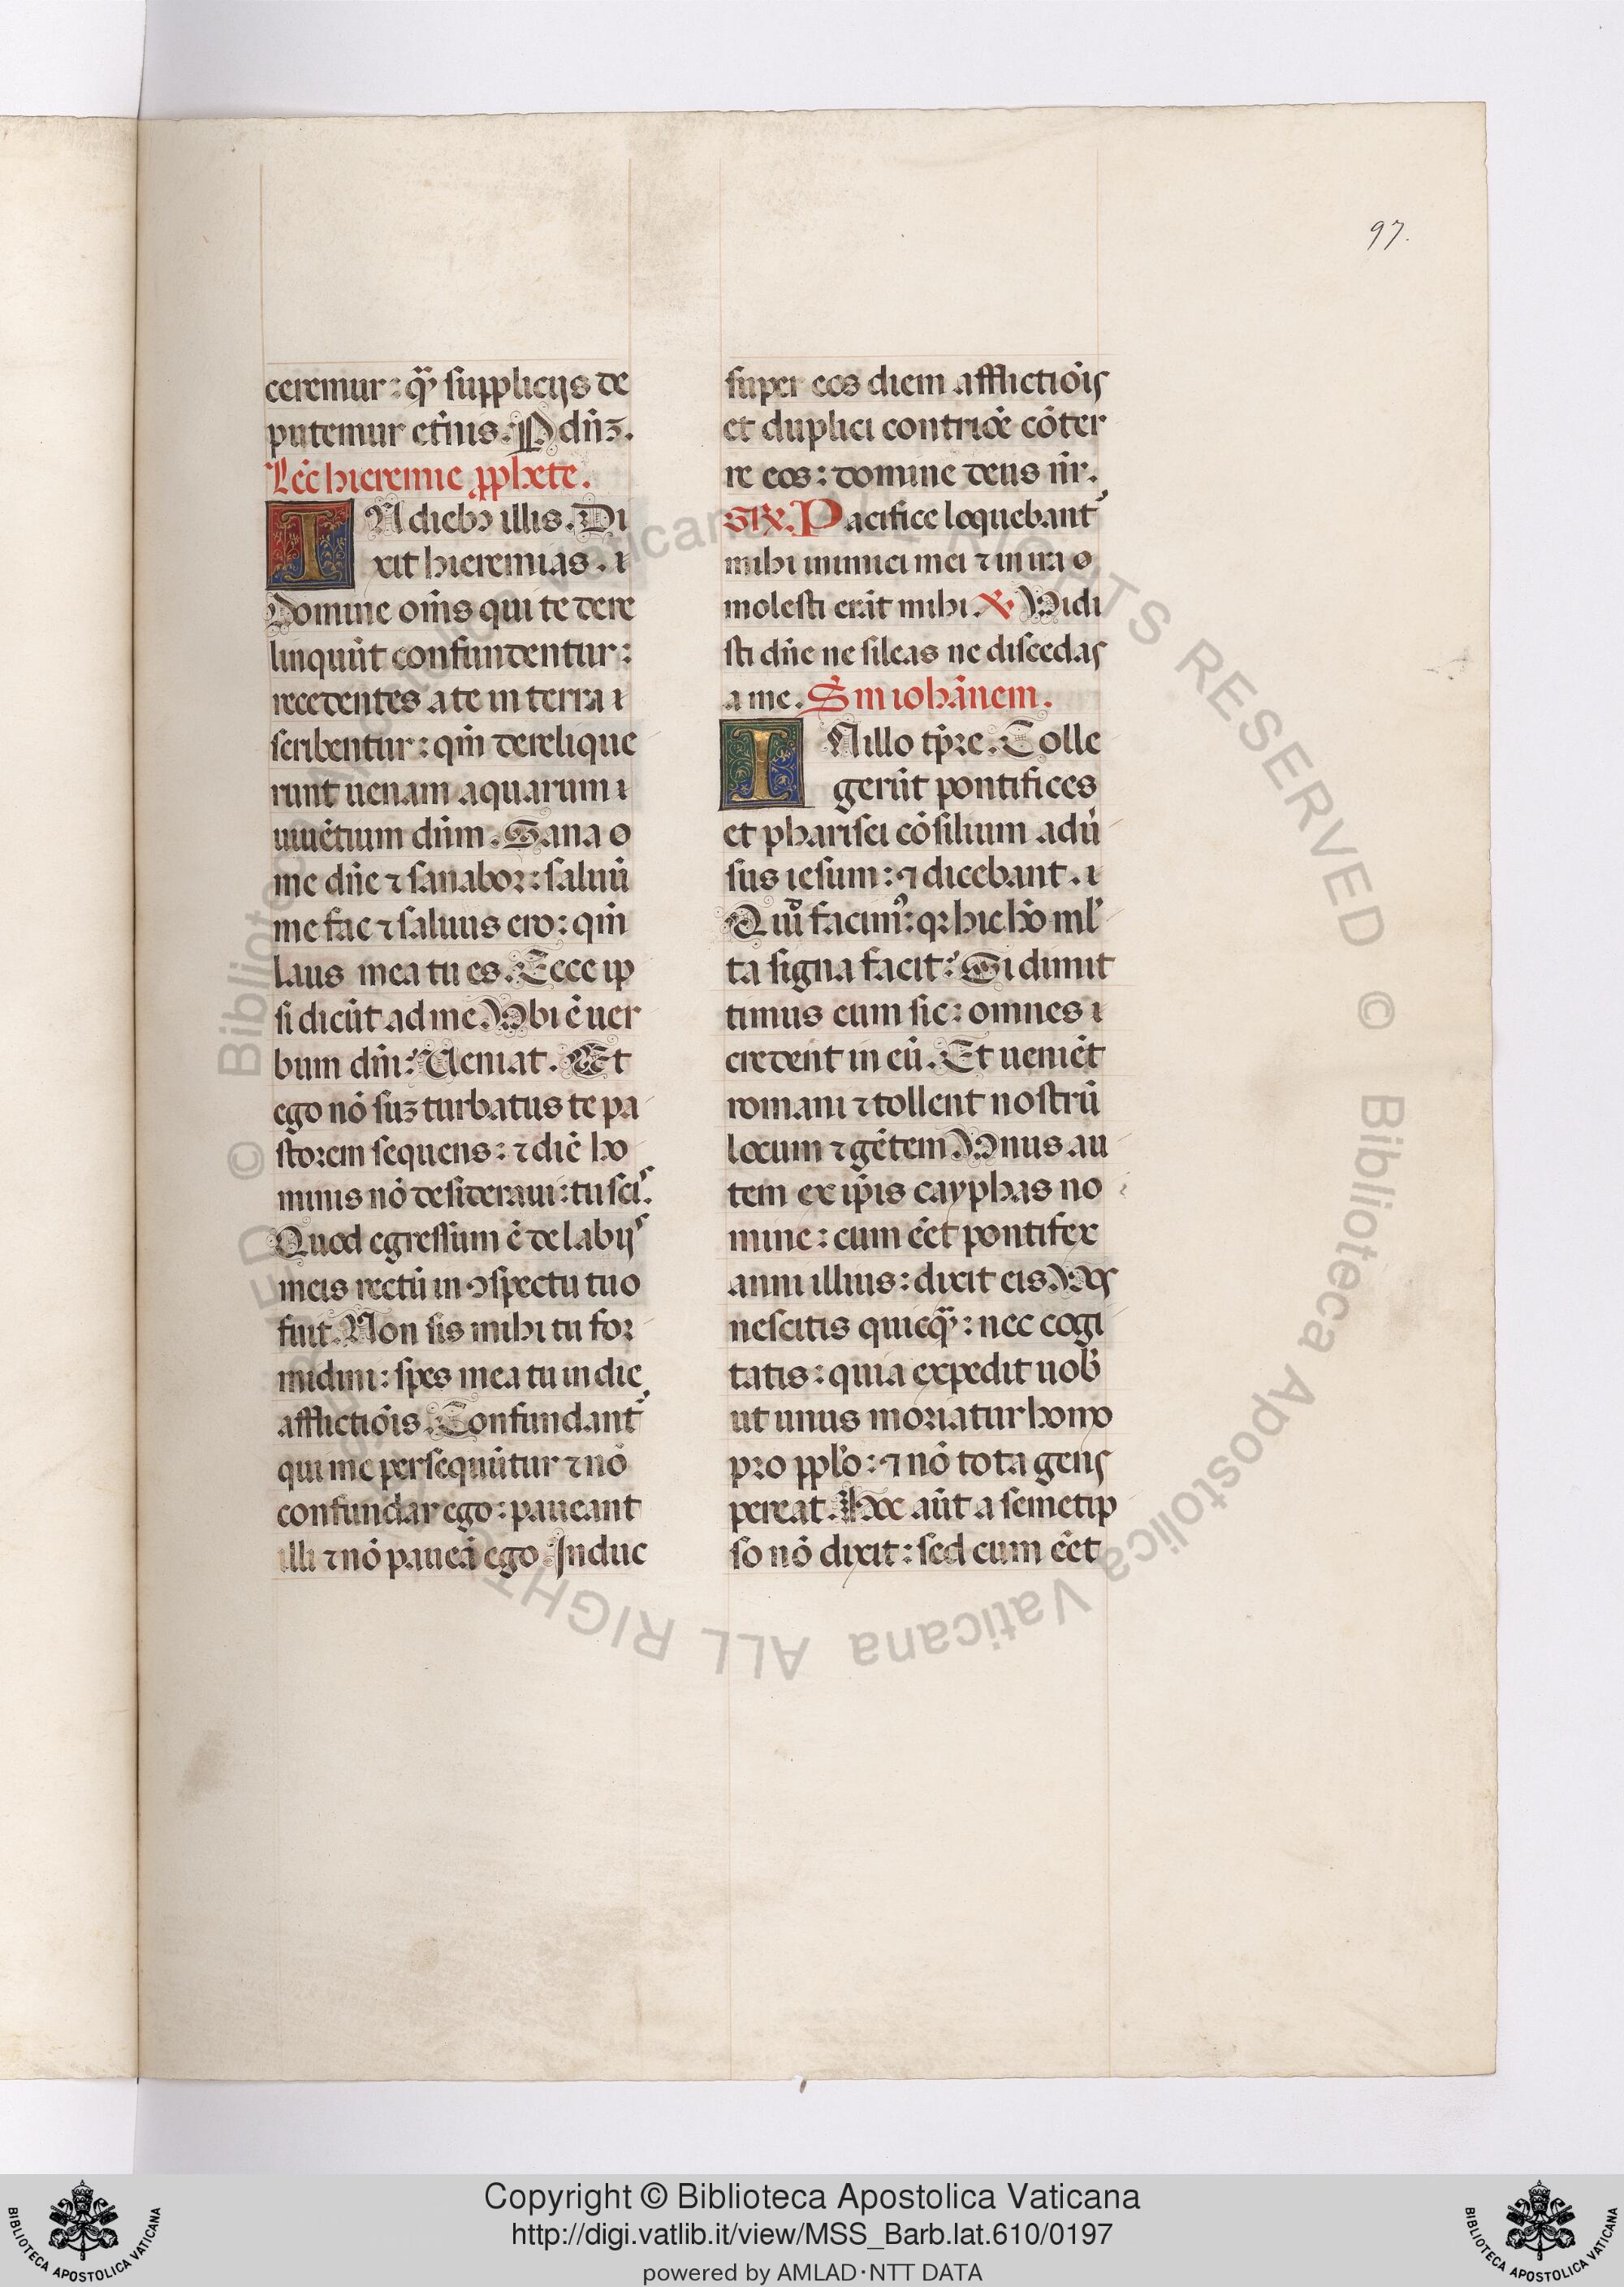 97.
ceremur: qͣ; supplicijs de
putemur et̃nis. P dñꝫ.
Lec̃ hieremie ꝓphete.
IN dieb; illis. Di
xit hieremias. ı
Domine om̃s qui te dere
linquũt confundentur:
recedentes a te in terra ı
scribentur: qm̃ derelique
runt uenam aquarum ı
uiuẽtium dñm. Sana o
me dñe ⁊ sanabor: saluũ
me fac ⁊ saluus ero: qm̃
laus mea tu es. Ecce ip
si dicũt ad me. Vbi ẽ uer
bum dñi: Ueniat. Et
ego nõ suꝫ turbatus te pa
storem sequens: ⁊ diẽ ho
minis nõ desideraui: tu scis.
Quod egressum ẽ de labijs
meis rectũ in ꝯspectu tuo
fuit. Non sis mihi tu for
midini: spes mea tu in die
afflictiõis. Confundantʼ
qui me persequũtur ⁊ nõ
confundar ego: paueant
illi ⁊ nõ paueã ego. Induc
super eos diem afflictiõis
et duplici contricõe cõter
re eos: domine deus nr̃.
GR. Pacifice loquebantʼ
mihi inimici mei ⁊ in ira o
molesti erãt mihi. V. Vidi
sti dñe ne sileas ne discedas
a me. Sm iohãnem.
IN illo tp̃re. Colle
gerũt pontifices
et pharisei cõsilium adũ
sus iesum: ⁊ dicebant. ı
Quͦd facimꝰ: qꝛ hic hõ ml̓
ta signa facit: Si dimit
timus eum sic: omnes ı
credent in eũ. Et ueniẽt
romani ⁊ tollent nostrũ
locum ⁊ gẽtem. Vnus au
tem ex ip̃is cayphas no
mine: cum eẽt pontifex
anni illius: dixit eis. Vos
nescitis quicqͣ;: nec cogi
tatis: quia expedit uob̓
ut unus moriatur homo
pro pplõ: ⁊ nõ tota gens
pereat. Hoc aũt a semetip
so nõ dixit: sed cum eẽt
© Biblioteca Apostolica Vaticana ALL RIGHTS RESERVED © Biblioteca Apostolica Vaticana ALL RIGHT
Copyright © Biblioteca Apostolica Vaticana
http://digi.vatlib.it/view/MSS_Barb.lat.610/0197
powered by AMLAD·NTT DATA
BIBLIOTECA APOSTOLICA VATICANA
BIBLIOTECA APOSTOLICA VATICANA